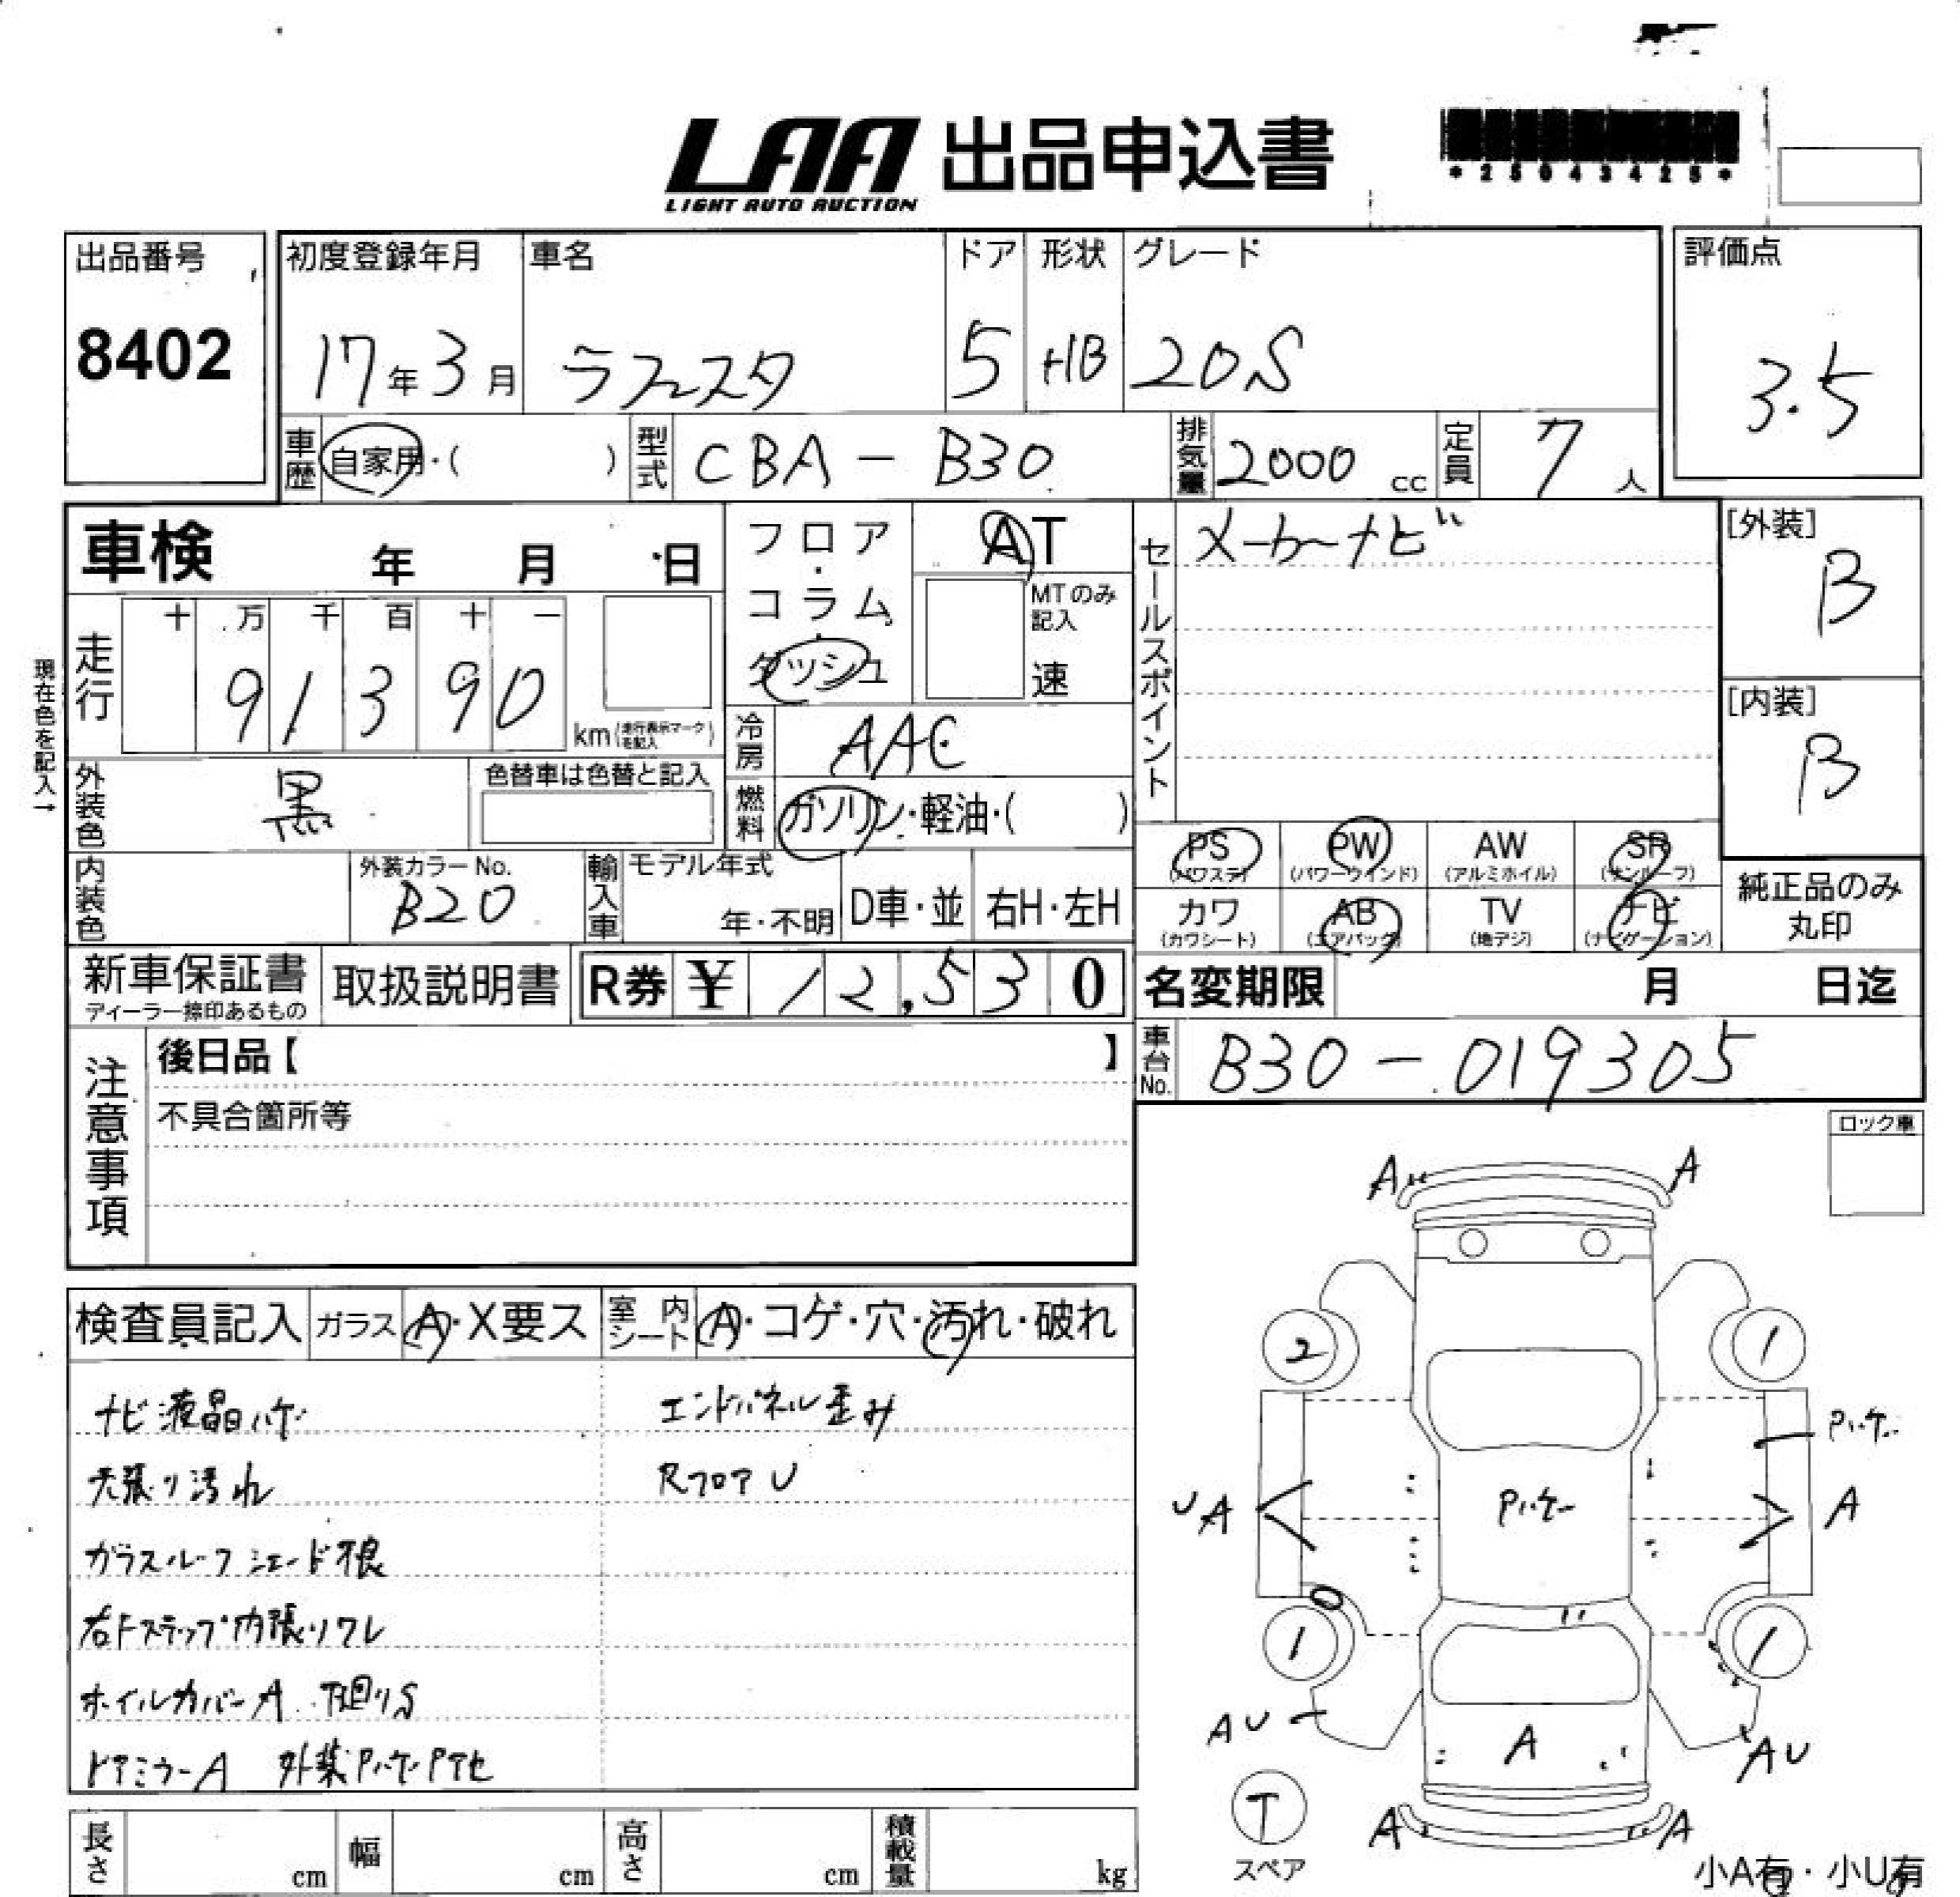 LAA 出品申込書
LIGHT AUTO AUCTION
*25043425*
出品番号
8402
初度登録年月
17年3月
車名
ラフェスタ
ドア
5
形状
HB
グレード
20S
評価点
3.5
車歴
自家用・( )
型式
CBA-B30
排気量
2000 cc
定員
7 人
車検 年 月 日
現在色を記入→
走行
十 万 千 百 十 一
9 1 3 9 0
km(走行表示マークを記入)
フロア・コラム・ダッシュ
AT
MTのみ記入
速
冷房
AAC
燃料
ガソリン・軽油・( )
セールスポイント
メーカーナビ
[外装]
B
[内装]
B
外装色
黒
色替車は色替と記入
内装色
外装カラーNo.
B20
輸入車
モデル年式
年・不明
D車・並
右H・左H
PS
(パワステ)
PW
(パワーウインド)
AW
(アルミホイル)
SR
(サンルーフ)
カワ
(カワシート)
AB
(エアバッグ)
TV
(地デジ)
ナビ
(ナビゲーション)
純正品のみ
丸印
新車保証書
ディーラー捺印あるもの
取扱説明書
R券 ¥ 12,530
名変期限 月 日迄
車台No.
B30-019305
注意事項
後日品【 】
不具合箇所等
ロック車
検査員記入
ガラス A・X要ス
室内シート A・コゲ・穴・汚れ・破れ
ナビ液晶ハゲ
天張り汚れ
ガラスルーフシェード不良
右Fステップ内張りワレ
ホイルカバーA 下廻りS
ドアミラーA 外装Pハゲ
エンドパネル歪み
RフロアU
A A
2 1
Pハゲ
UA
Pハゲ
A
1 1
AU
A
AU
T
スペア
A A
小A有・小U有
長さ cm
幅 cm
高さ cm
積載量 kg